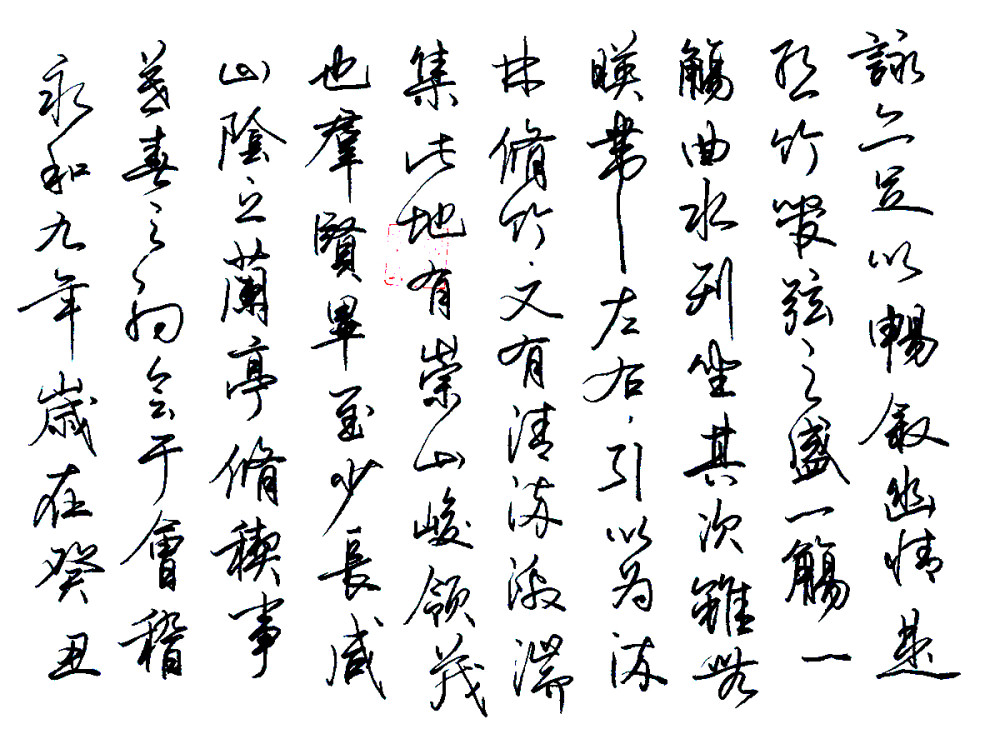 永和九年歲在癸丑
暮春之初会于會稽
山陰之蘭亭脩稧事
也羣賢畢至少長咸
集此地有崇山峻領茂
林脩竹又有清流激湍
暎帶左右引以為流
觴曲水列坐其次雖無
絲竹管弦之盛一觴一
詠亦足以暢叙幽情是